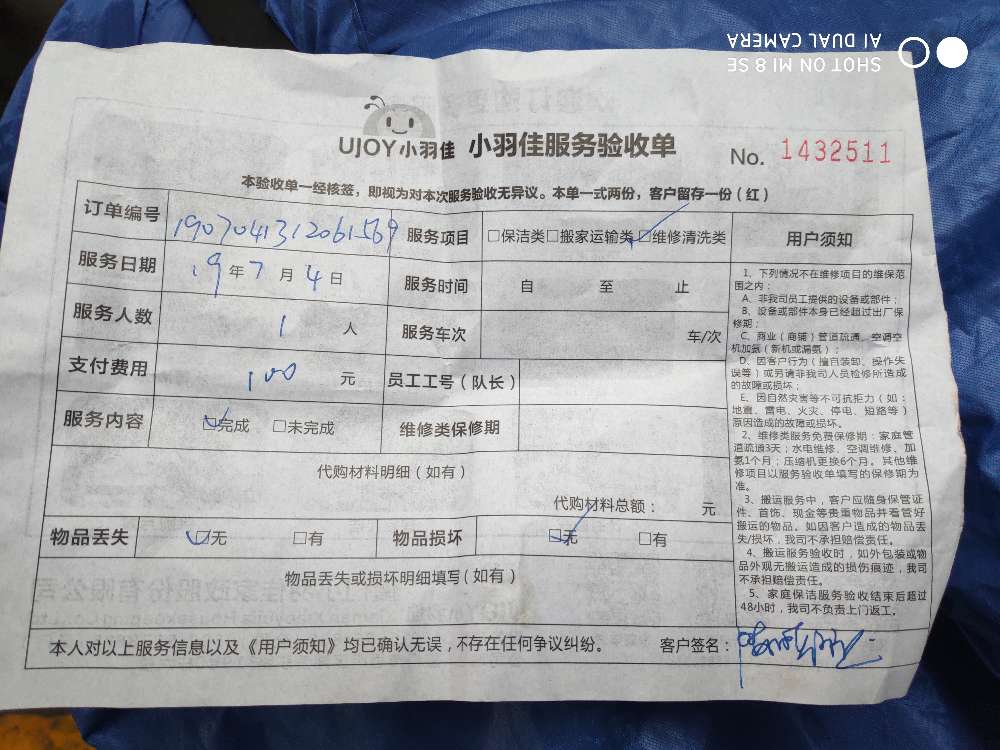 SHOT ON MI 8 SE
AI DUAL CAMERA
UJOY小羽佳 小羽佳服务验收单 No. 1432511
本验收单一经核签，即视为对本次服务验收无异议。本单一式两份，客户留存一份（红）
订单编号 190704312061569 服务项目 □保洁类□搬家运输类☑维修清洗类 用户须知
服务日期 19年7月4日 服务时间 自 至 止
服务人数 1 人 服务车次 车/次
支付费用 100 元 员工工号（队长）
服务内容 ☑完成 □未完成 维修类保修期
代购材料明细（如有）
代购材料总额： 元
物品丢失 ☑无 □有 物品损坏 ☑无 □有
物品丢失或损坏明细填写（如有）
1、下列情况不在维修项目的维保范
围之内：
A、非我司员工提供的设备或部件；
B、设备或部件本身已经超过出厂保
修期；
C、商业（商铺）管道疏通、空调空
机加氨（新机或漏氨）；
D、因客户行为（擅自装卸、操作失
误等）或另请非我司人员检修所造成
的故障或损坏；
E、因自然灾害等不可抗拒力（如：
地震、雷电、火灾、停电、短路等）
原因造成的故障或损坏。
2、维修类服务免费保修期：家庭管
道疏通3天；水电维修、空调维修、加
氨1个月；压缩机更换6个月。其他维
修项目以服务验收单填写的保修期为
准。
3、搬运服务中，客户应随身保管证
件、首饰、现金等贵重物品并看管好
搬运的物品。如因客户造成的物品丢
失/损坏，我司不承担赔偿责任。
4、搬运服务验收时，如外包装或物
品外观无搬运造成的损伤痕迹，我司
不承担赔偿责任。
5、家庭保洁服务验收结束后超过
48小时，我司不负责上门返工。
本人对以上服务信息以及《用户须知》均已确认无误，不存在任何争议纠纷。 客户签名：